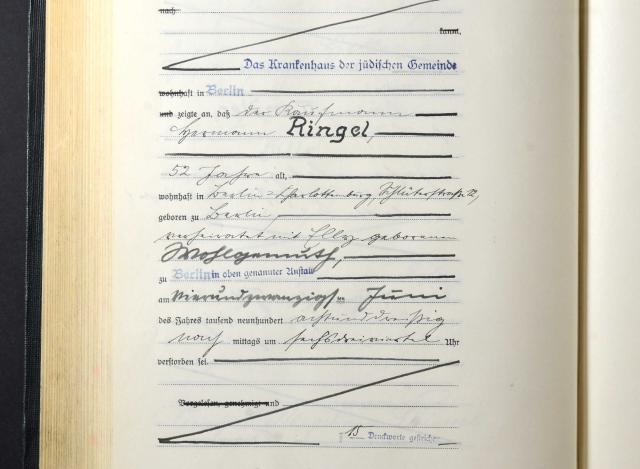 nach
kannt,
Das Krankenhaus der jüdischen Gemeinde
wohnhaft in Berlin
und zeigte an, daß der Kaufmann
Hermann Ringel,
52 Jahre alt,
wohnhaft in Berlin-Charlottenburg, Schlüterstraße 12,
geboren zu Berlin,
verheiratet mit Elly geborenen
Wohlgemuth,
zu Berlin in oben genannter Anstalt
am vierundzwanzigsten Juni
des Jahres tausend neunhundert achtunddreißig
nach mittags um sechsdreiviertel Uhr
verstorben sei.
Vorgelesen, genehmigt und
15 Druckworte gestrichen